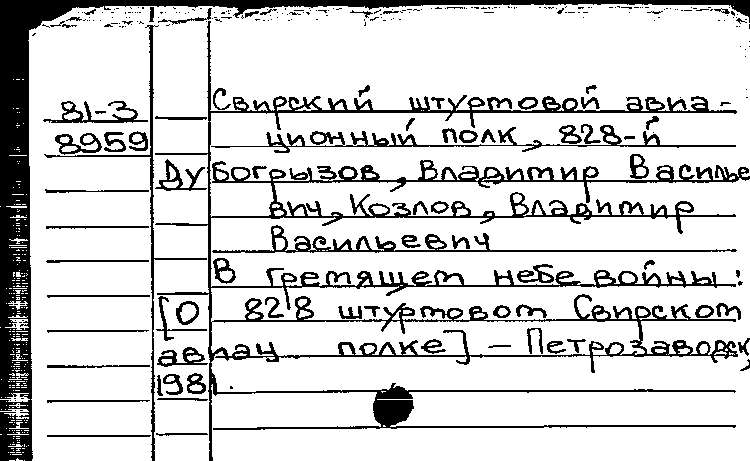 81-3 Свирский штурмовой авиа-
8959 ционный полк, 828-й
Дубогрызов, Владимир Василье
вич, Козлов, Владимир
Васильевич
В гремящем небе войны:
[О 828 штурмовом Свирском
авиац. полке] – Петрозаводск,
1981.